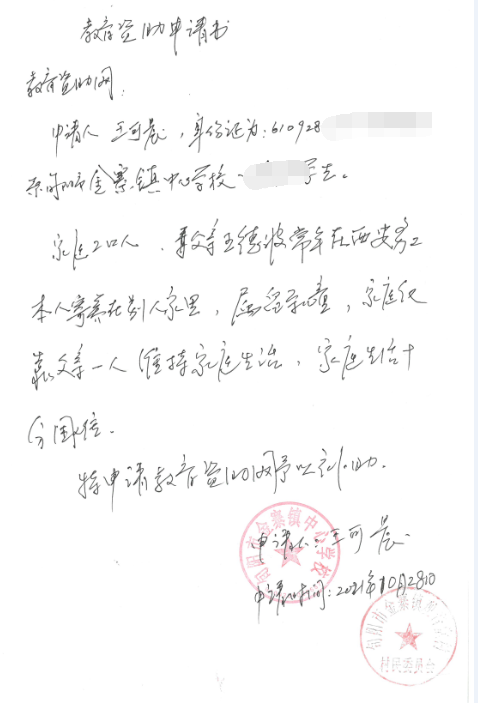 教育资助申请书
教育资助网:
申请人王可晨,身份证为:610928
系旬阳市金寨镇中心学校 学生。
家庭2口人、其父亲王德波常年在西安务工
本人寄养在别人家里,属留守儿童,家庭仅
靠父亲一人维持家庭生活,家庭生活十
分困难.
特申请教育资助网予以资助.
申请人:王可晨
申请时间:2021年10月28日
旬阳市金寨镇中心学校
旬阳市金寨镇
村民委员会